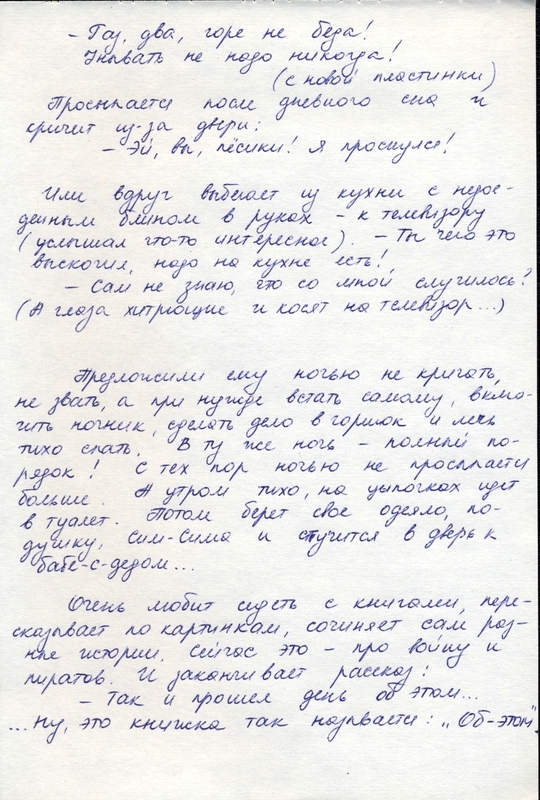 - Раз, два, горе не беда!
Унывать не надо никогда!
(с новой пластинки)
Просыпается после дневного сна и
кричит из-за двери:
- Эй, вы, пёсики! Я проснулся!
Или вдруг выбегает из кухни с недое-
денным блином в руках - к телевизору
(услышал что-то интересное). - Ты чего это
выскочил, надо на кухне есть!
- Сам не знаю, что со мной случилось!
(А глаза хитрющие и косят на телевизор...)
Предложили ему ночью не кричать,
не звать, а при нужде встать самому, вклю-
чить ночник, сделать дело в горшок и лечь
тихо спать. В ту же ночь - полный по-
рядок! С тех пор ночью не просыпается
больше. А утром тихо, на цыпочках идет
в туалет. Потом берет свое одеяло, по-
душку, Сим-Сима и стучится в дверь к
бабе-с-дедом...
Очень любит сидеть с книгами, пере-
сказывает по картинкам, сочиняет сам раз-
ные истории. Сейчас это - про войну и
пиратов. И заканчивает рассказ:
- Так и прошел день об этом...
...Ну, это книжка так называется: „Об-этом"